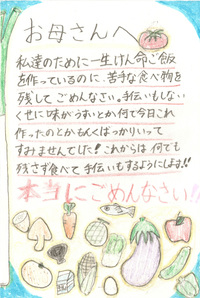 お母さんへ
私達のために一生けん命ご飯
を作っているのに、苦手な食べ物を
残してごめんなさい。手伝いもしない
くせに味がうすいとか何で今日これ
作ったのとかもんくばっかりいって
すみませんでした！これからは何でも
残さず食べて手伝いもするようにします!!
本当にごめんなさい!!